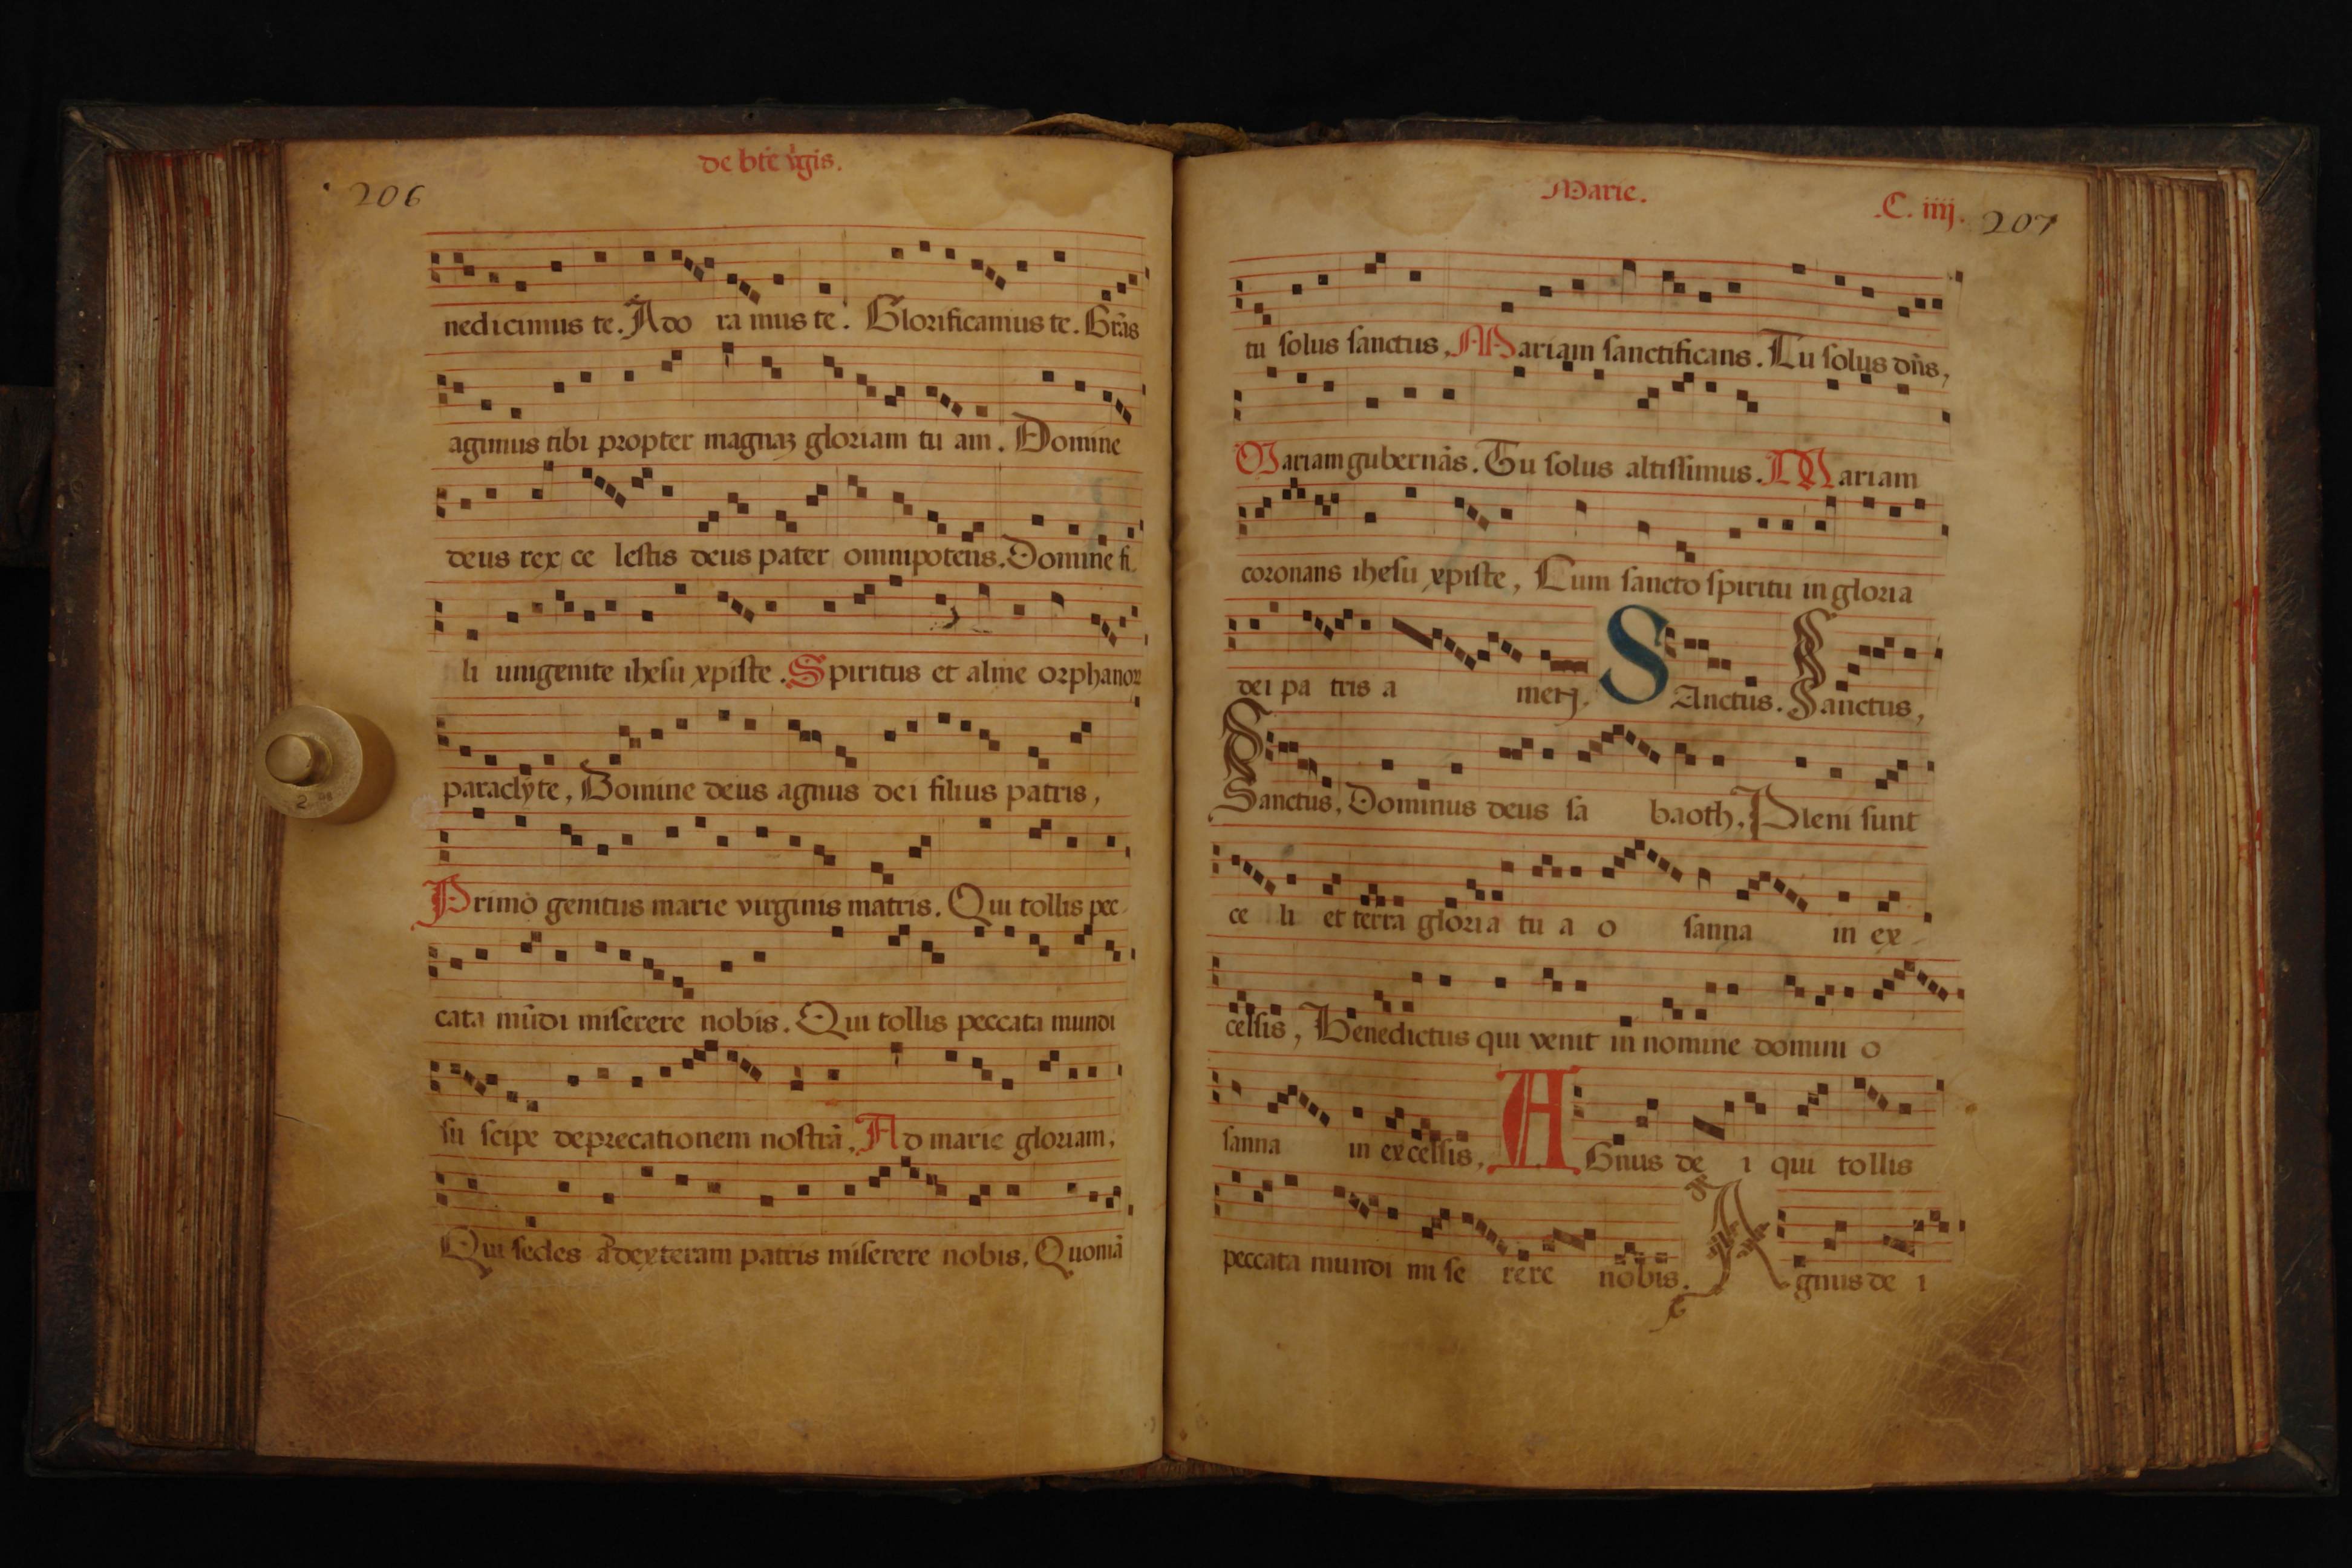 206
de bt̄e v̄gis.
nedicimus te. Ado ra mus te. Glorificamus te. Grās
agimus tibi propter magnaʒ gloriam tu am. Domine
deus rex ce lestis deus pater omnipotens. Domine fi
li unigenite ihesu xpiste. Spiritus et alme orphanoꝝ
paraclyte, Domine deus agnus dei filius patris,
Primo genitus marie virginis matris. Qui tollis pec
cata mūdi miserere nobis. Qui tollis peccata mundi
su scipe deprecationem nostrā, Ad marie gloriam,
Qui sedes ad dexteram patris miserere nobis. Quoniā
Marie.
C. iiij.
207
tu solus sanctus, Mariam sanctificans. Tu solus dn̄s,
Mariam gubernās. Tu solus altissimus. Mariam
coronans ihesu xpiste, Cum sancto spiritu in gloria
dei pa tris a men. SAnctus. Sanctus,
Sanctus, Dominus deus sa baoth, Pleni sunt
ce li et terra gloria tu a o sanna in ex-
celsis, Benedictus qui venit in nomine domini o
sanna in excelsis, AGnus de i qui tollis
peccata mundi mi se rere nobis. Agnus de i